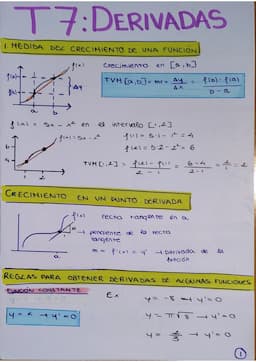 T7: DERIVADAS
1. MEDIDA DEL CRECIMIENTO DE UNA FUNCIÓN
CRECIMIENTO en [a, b]
f(x)
f(b)
f(a)
Δy
a b
TVM [a,b] = m = Δy/Δx = f(b) - f(a) / b - a
f(x) = 5x - x² en el intervalo [1,2]
f(x) = 5x - x²
f(1) = 5·1 - 1² = 4
f(2) = 5·2 - 2² = 6
6
4
1 2
TVM [1,2] = f(2) - f(1) / 2 - 1 = 6-4 / 2-1 = 2/1 = 2
CRECIMIENTO EN UN PUNTO DERIVADA
f(x)
recta tangente en a
pendiente de la recta tangente
a
m = f'(x) = y' → derivada de la función
REGLAS PARA OBTENER DERIVADAS DE ALGUNAS FUNCIONES
FUNCIÓN CONSTANTE
Ex
y = -8 → y' = 0
y = k → y' = 0
y = π√3 → y' = 0
y = 2/3 → y' = 0
1